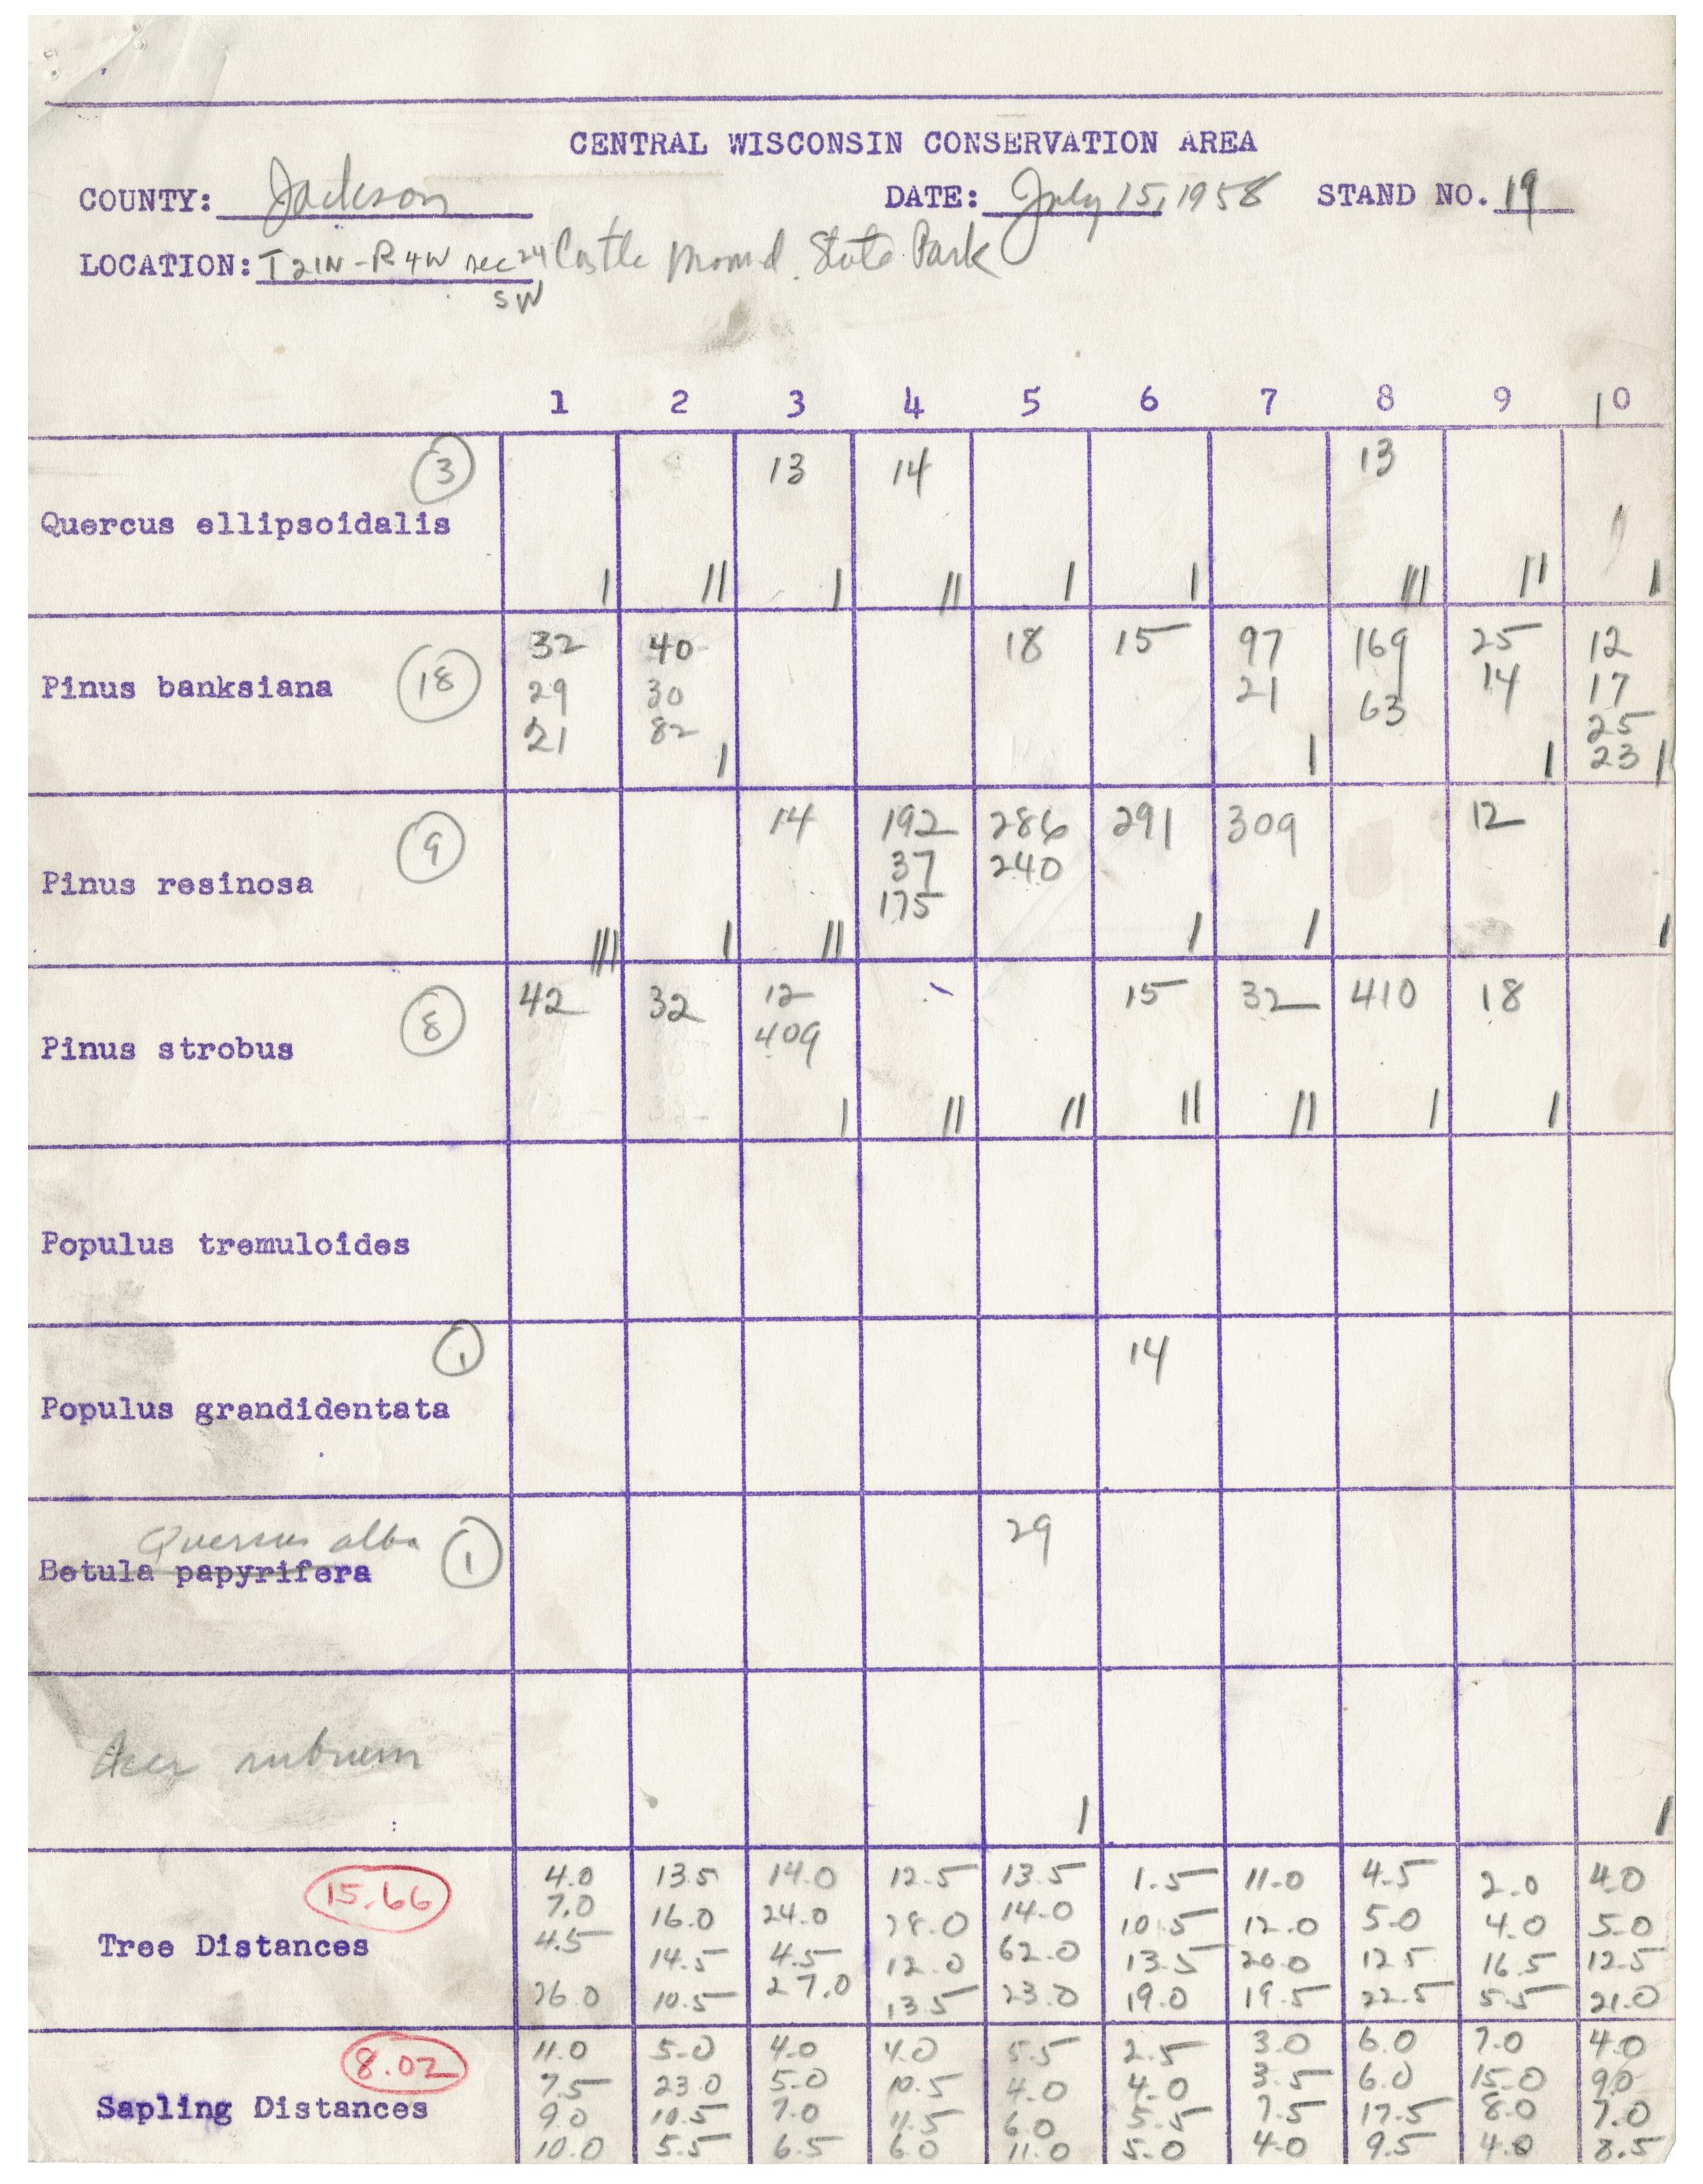 CENTRAL WISCONSIN CONSERVATION AREA
COUNTY: Jackson DATE: July 15, 1958 STAND NO. 19
LOCATION: T21N-R4W Sec 24 Castle Mound State Park
SW
1 2 3 4 5 6 7 8 9 10
3 13 14 13
Quercus ellipsoidalis
| || | || | | ||| || |
32 40 18 15 97 169 25 12
Pinus banksiana 18 29 30 21 63 14 17
21 82 25
| | | 23 |
14 192 286 291 309 12
9 37 240
Pinus resinosa 175
||| | || | | |
42 32 12 15 32 410 18
8 409
Pinus strobus
| || || || || | |
Populus tremuloides
1 14
Populus grandidentata
Quercus alba 1 29
Betula papyrifera
Acer rubrum
| |
15.66 4.0 13.5 14.0 12.5 13.5 1.5 11.0 4.5 2.0 4.0
7.0 16.0 24.0 28.0 14.0 10.5 12.0 5.0 4.0 5.0
Tree Distances 4.5 14.5 4.5 12.0 62.0 13.5 20.0 12.5 16.5 12.5
26.0 10.5 27.0 13.5 23.0 19.0 19.5 22.5 5.5 21.0
8.02 11.0 5.0 4.0 4.0 5.5 2.5 3.0 6.0 7.0 4.0
7.5 23.0 5.0 10.5 4.0 4.0 3.5 6.0 15.0 9.0
Sapling Distances 9.0 10.5 7.0 11.5 6.0 5.5 7.5 17.5 8.0 7.0
10.0 5.5 6.5 6.0 11.0 5.0 4.0 9.5 4.0 8.5